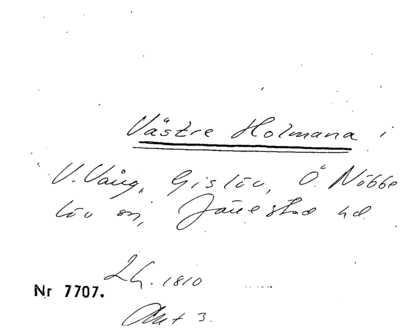 Västre Holmana i
V. Vång, Gislöv, Ö. Nöbbe
löv sn, Järrestad hd
Lh. 1810
Nr 7707.
Akt 3.